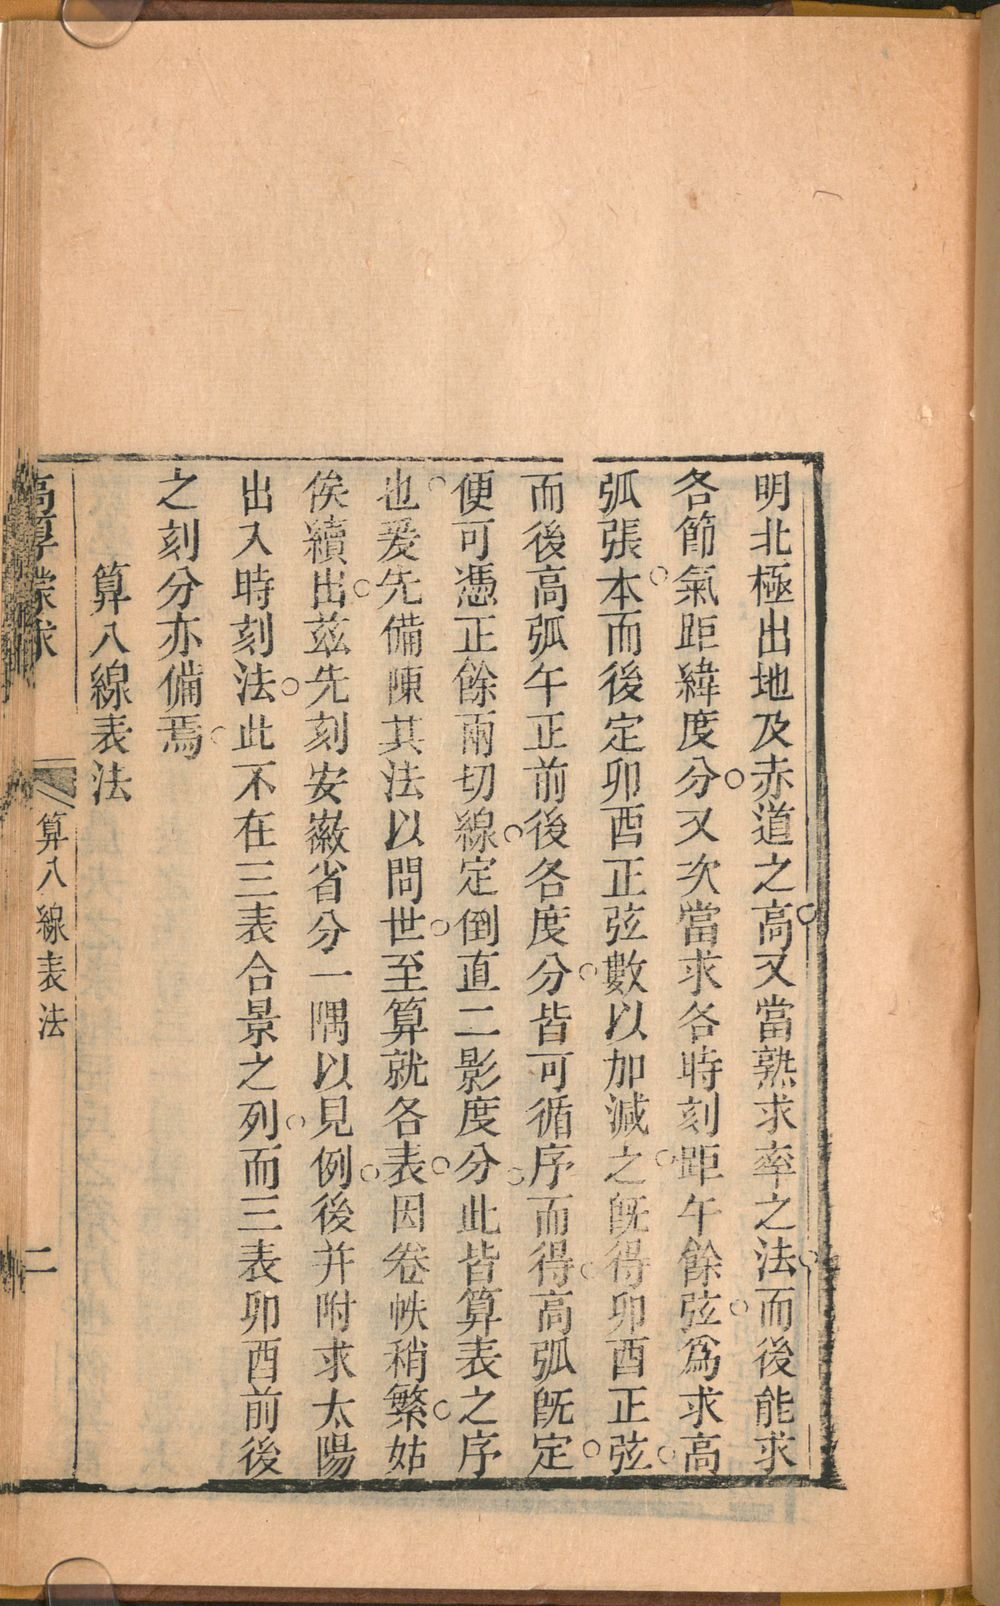 明北極出地及赤道之高又當熟求率之法而後能求
各節氣距緯度分又次當求各時刻距午餘弦爲求高
弧張本而後定卯酉正弦數以加減之旣得卯酉正弦
而後高弧午正前後各度分皆可循序而得高弧旣定
便可憑正餘兩切線定倒直二影度分此皆算表之序
也爰先備陳其法以問世至算就各表因卷帙稍繁姑
俟續出茲先刻安徽省分一隅以見例後并附求太陽
出入時刻法此不在三表合景之列而三表卯酉前後
之刻分亦備焉
算八線表法
算八線表法
二